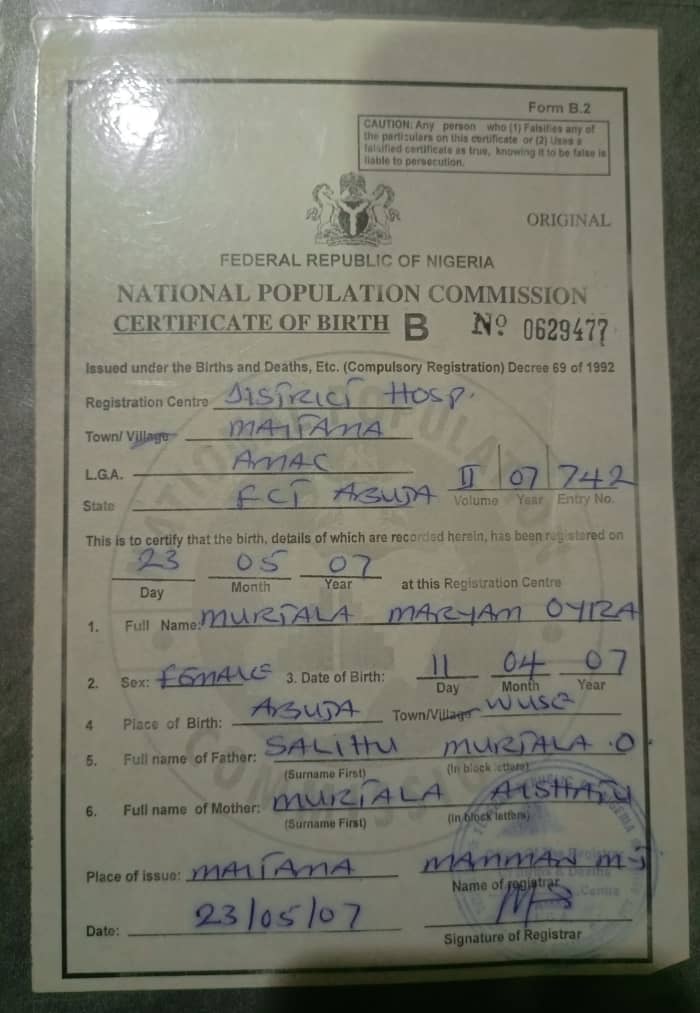 Form B.2
CAUTION: Any person who (1) Falsifies any of
the particulars on this certificate or (2) Uses a
falsified certificate as true, knowing it to be false is
liable to persecution.
ORIGINAL
FEDERAL REPUBLIC OF NIGERIA
NATIONAL POPULATION COMMISSION
CERTIFICATE OF BIRTH B No 0629477
Issued under the Births and Deaths, Etc. (Compulsory Registration) Decree 69 of 1992
Registration Centre DISTRICT HOSP.
Town/ Village MAITAMA
L.G.A. AMAC
State FCT ABUJA
II 07 742
Volume Year Entry No.
This is to certify that the birth, details of which are recorded herein, has been registered on
23 05 07
Day Month Year at this Registration Centre
1. Full Name: MURTALA MARYAM OYIZA
2. Sex: FEMALE 3. Date of Birth: 11 04 07
Day Month Year
4 Place of Birth: ABUJA Town/Village WUSE
5. Full name of Father: SALIHU MURTALA .O.
(Surname First) (In block letters)
6. Full name of Mother: MURTALA AISHATU
(Surname First) (In block letters)
Place of issue: MAITAMA MAMMAN M.S
Name of registrar
Date: 23/05/07 MS
Signature of Registrar